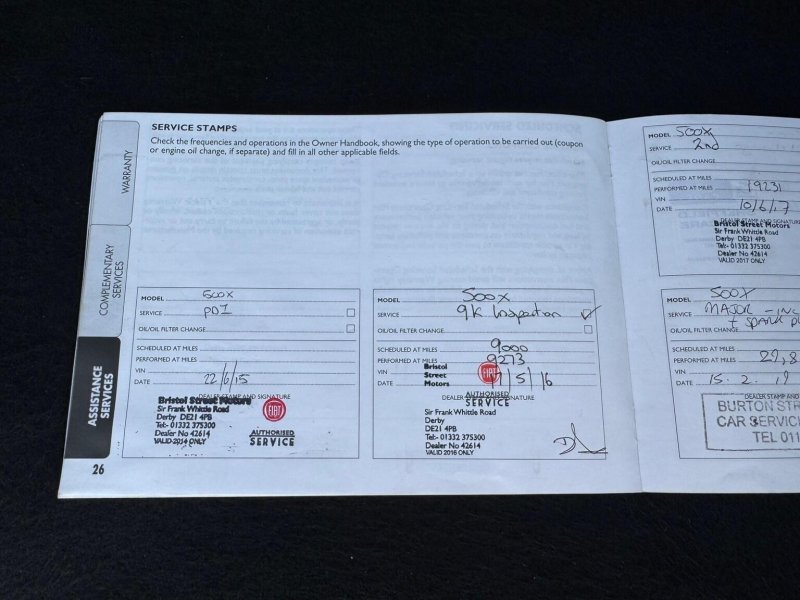 SERVICE STAMPS
Check the frequencies and operations in the Owner Handbook, showing the type of operation to be carried out (coupon
or engine oil change, if separate) and fill in all other applicable fields.
WARRANTY
COMPLEMENTARY
SERVICES
ASSISTANCE
SERVICES
MODEL 500X
SERVICE PDI
OIL/OIL FILTER CHANGE
SCHEDULED AT MILES
PERFORMED AT MILES
VIN
DATE 22/6/15
DEALER STAMP AND SIGNATURE
Bristol Street Motors
Sir Frank Whittle Road
Derby DE21 4PB
Tel:- 01332 375300
Dealer No 42614
VALID 2014 ONLY
FIAT
AUTHORISED
SERVICE
26
MODEL 500X
SERVICE 9K Inspection
OIL/OIL FILTER CHANGE
SCHEDULED AT MILES 9000
PERFORMED AT MILES 9273
VIN
DATE 17/5/16
DEALER STAMP AND SIGNATURE
Bristol
Street
Motors
FIAT
AUTHORISED
SERVICE
Sir Frank Whittle Road
Derby
DE21 4PB
Tel:- 01332 375300
Dealer No 42614
VALID 2016 ONLY
MODEL 500X
SERVICE 2nd
OIL/OIL FILTER CHANGE
SCHEDULED AT MILES
PERFORMED AT MILES 19231
VIN
DATE 10/6/17
DEALER STAMP AND SIGNATURE
Bristol Street Motors
Sir Frank Whittle Road
Derby DE21 4PB
Tel:- 01332 375300
Dealer No 42614
VALID 2017 ONLY
MODEL 500X
SERVICE MAJOR - INC
+ SPARK PL
OIL/OIL FILTER CHANGE
SCHEDULED AT MILES
PERFORMED AT MILES 29,8
VIN
DATE 15. 2. 19
DEALER STAMP AND
BURTON STR
CAR SERVIC
TEL 011